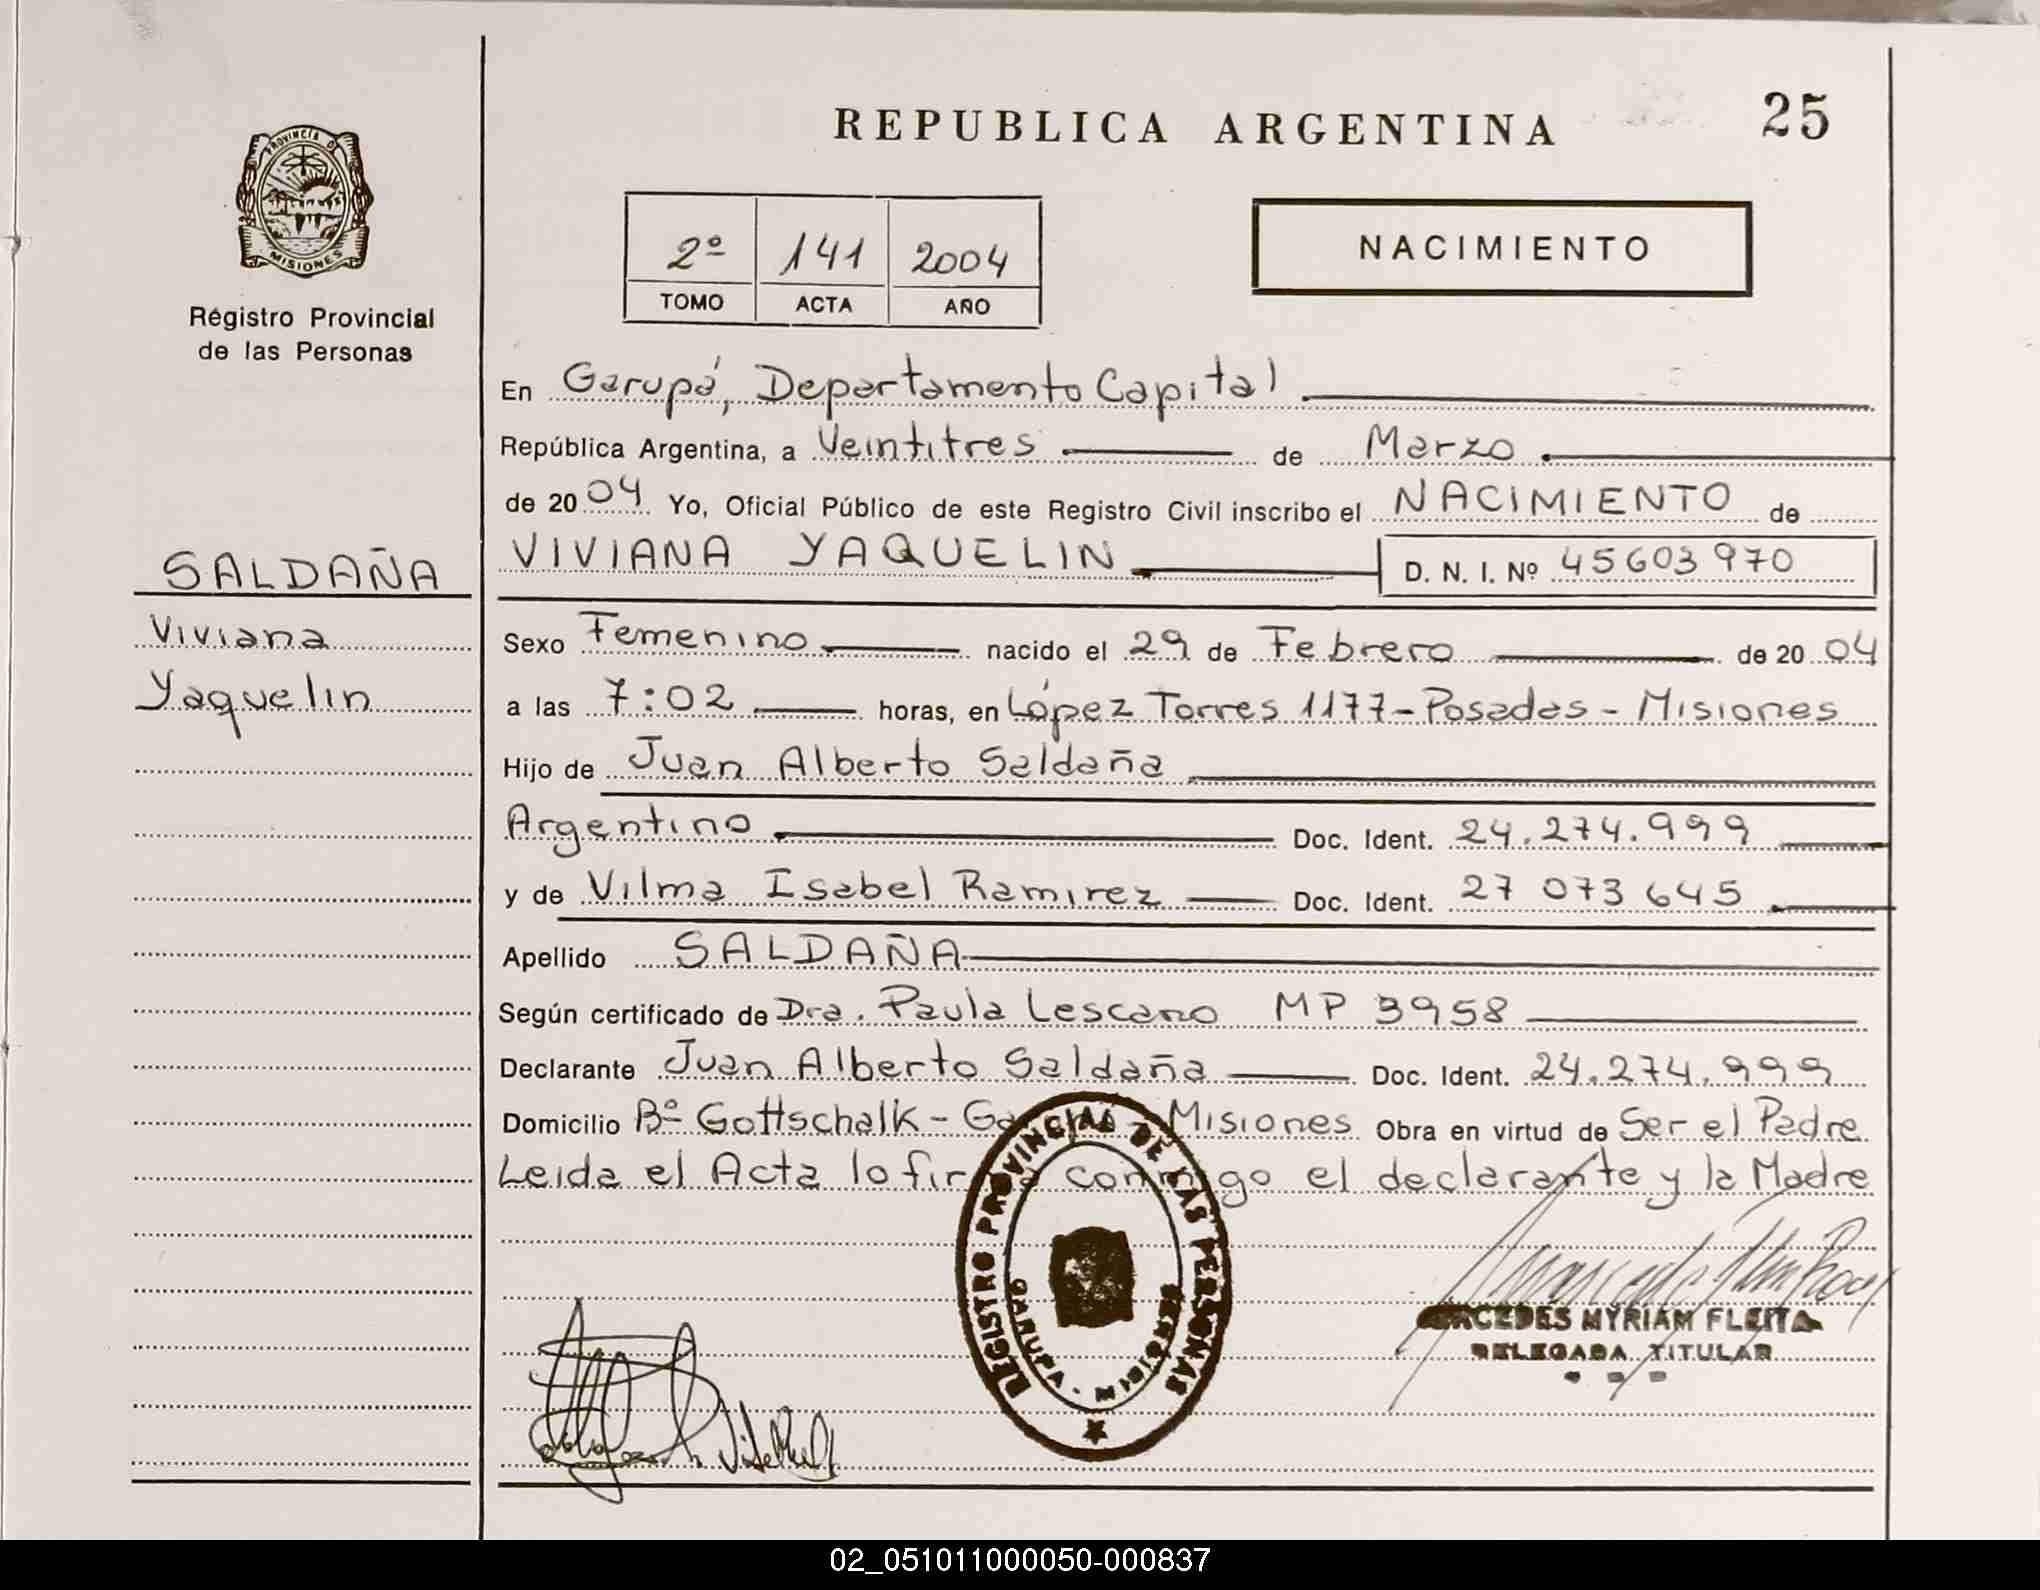 REPUBLICA ARGENTINA
25
PROVINCIA DE
MISIONES
Registro Provincial
de las Personas
2º 141 2004
TOMO ACTA AÑO
NACIMIENTO
En Garupá, Departamento Capital
República Argentina, a Veintitres de Marzo
de 2004 Yo, Oficial Público de este Registro Civil inscribo el NACIMIENTO de
VIVIANA YAQUELIN D. N. I. Nº 45603970
SALDAÑA
Viviana
Yaquelin
Sexo Femenino nacido el 29 de Febrero de 2004
a las 7:02 horas, en López Torres 1177-Posadas - Misiones
Hijo de Juan Alberto Saldaña
Argentino Doc. Ident. 24.274.999
y de Vilma Isabel Ramirez Doc. Ident. 27 073 645
Apellido SALDAÑA
Según certificado de Dra. Paula Lescano MP 3958
Declarante Juan Alberto Saldaña Doc. Ident. 24.274.999
Domicilio Bº Gottschalk - Misiones Obra en virtud de Ser el Padre
Leida el Acta lo conmigo el declarante y la Madre
REGISTRO PROVINCIAL DE LAS PERSONAS
GARUPA - MISIONES
MERCEDES MYRIAM FLEITA
DELEGADA TITULAR
02_051011000050-000837